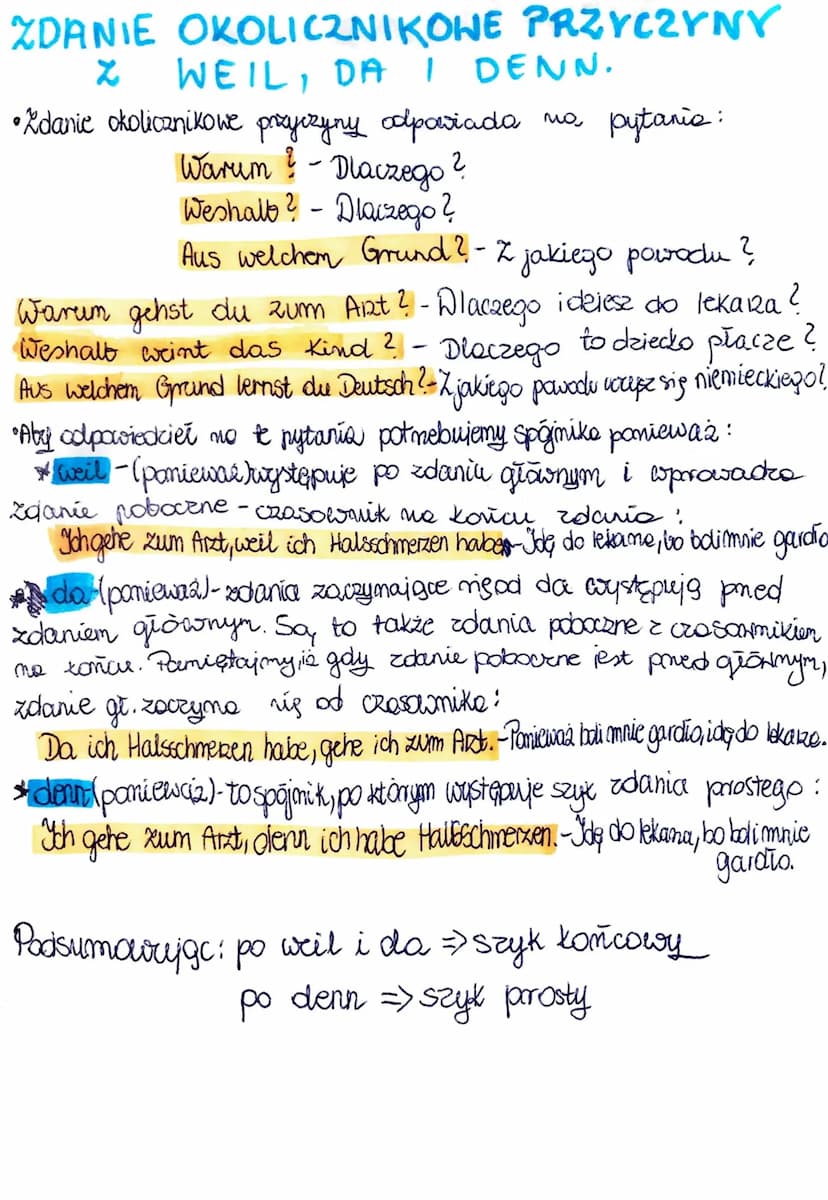 ZDANIE OKOLICZNIKOWE PRZYCZYNY
Z WEIL, DA I DENN.
•Zdanie okolicznikowe przyczyny odpowiada na pytania:
Warum? - Dlaczego?
Weshalb? - Dlaczego?
Aus welchem Grund? - Z jakiego powodu?
Warum gehst du zum Arzt? - Dlaczego idziesz do lekarza?
Weshalb weint das Kind? - Dlaczego to dziecko płacze?
Aus welchem Grund lernst du Deutsch? - Z jakiego powodu uczysz się niemieckiego?
•Aby odpowiedzieć na te pytania potrzebujemy spójnika ponieważ:
*weil - (ponieważ) występuje po zdaniu głównym i wprowadza
zdanie poboczne - czasownik na końcu zdania:
Ich gehe zum Arzt, weil ich Halsschmerzen habe - Idę do lekarza, bo boli mnie gardło
* da - (ponieważ) - zdania zaczynające się od da występują przed
zdaniem głównym. Są to także zdania poboczne z czasownikiem
na końcu. Pamiętajmy, iż gdy zdanie poboczne jest przed głównym,
zdanie gł. zaczyna się od czasownika:
Da ich Halsschmerzen habe, gehe ich zum Arzt. - Ponieważ boli mnie gardło, idę do lekarza.
*denn (ponieważ) - to spójnik, po którym występuje szyk zdania prostego:
Ich gehe zum Arzt, denn ich habe Halsschmerzen. - Idę do lekarza, bo boli mnie
gardło.
Podsumowując: po weil i da => szyk końcowy
po denn => szyk prosty